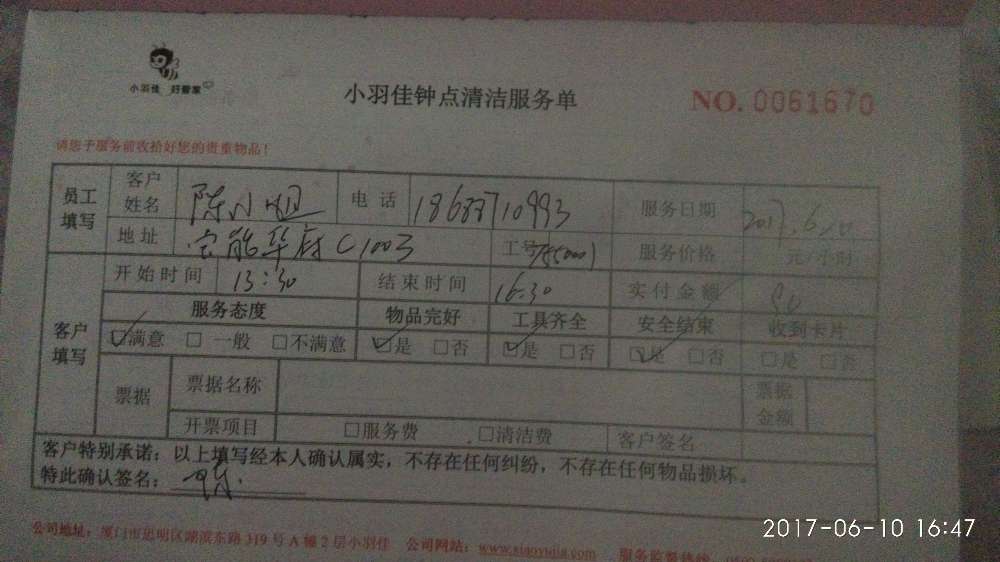 小羽佳 好管家
小羽佳钟点清洁服务单
NO. 0061670
请您于服务前收拾好您的贵重物品！
员工填写 客户姓名 陈小姐 电话 18688710993 服务日期 2017.6.10
地址 宝能华府C1003 工号 服务价格 元/小时
开始时间 13:30 结束时间 16:30 实付金额
客户填写 服务态度 物品完好 工具齐全 安全结束 收到卡片
☑满意 □一般 □不满意 ☑是 □否 ☑是 □否 ☑是 □否 □是 □否
票据 票据名称 票据金额
开票项目 □服务费 □清洁费 客户签名
客户特别承诺：以上填写经本人确认属实，不存在任何纠纷，不存在任何物品损坏。
特此确认签名：陈
公司地址：厦门市思明区湖滨东路319号A幢2层小羽佳 公司网站：www.xiaoyujia.com 服务监督热线
2017-06-10 16:47